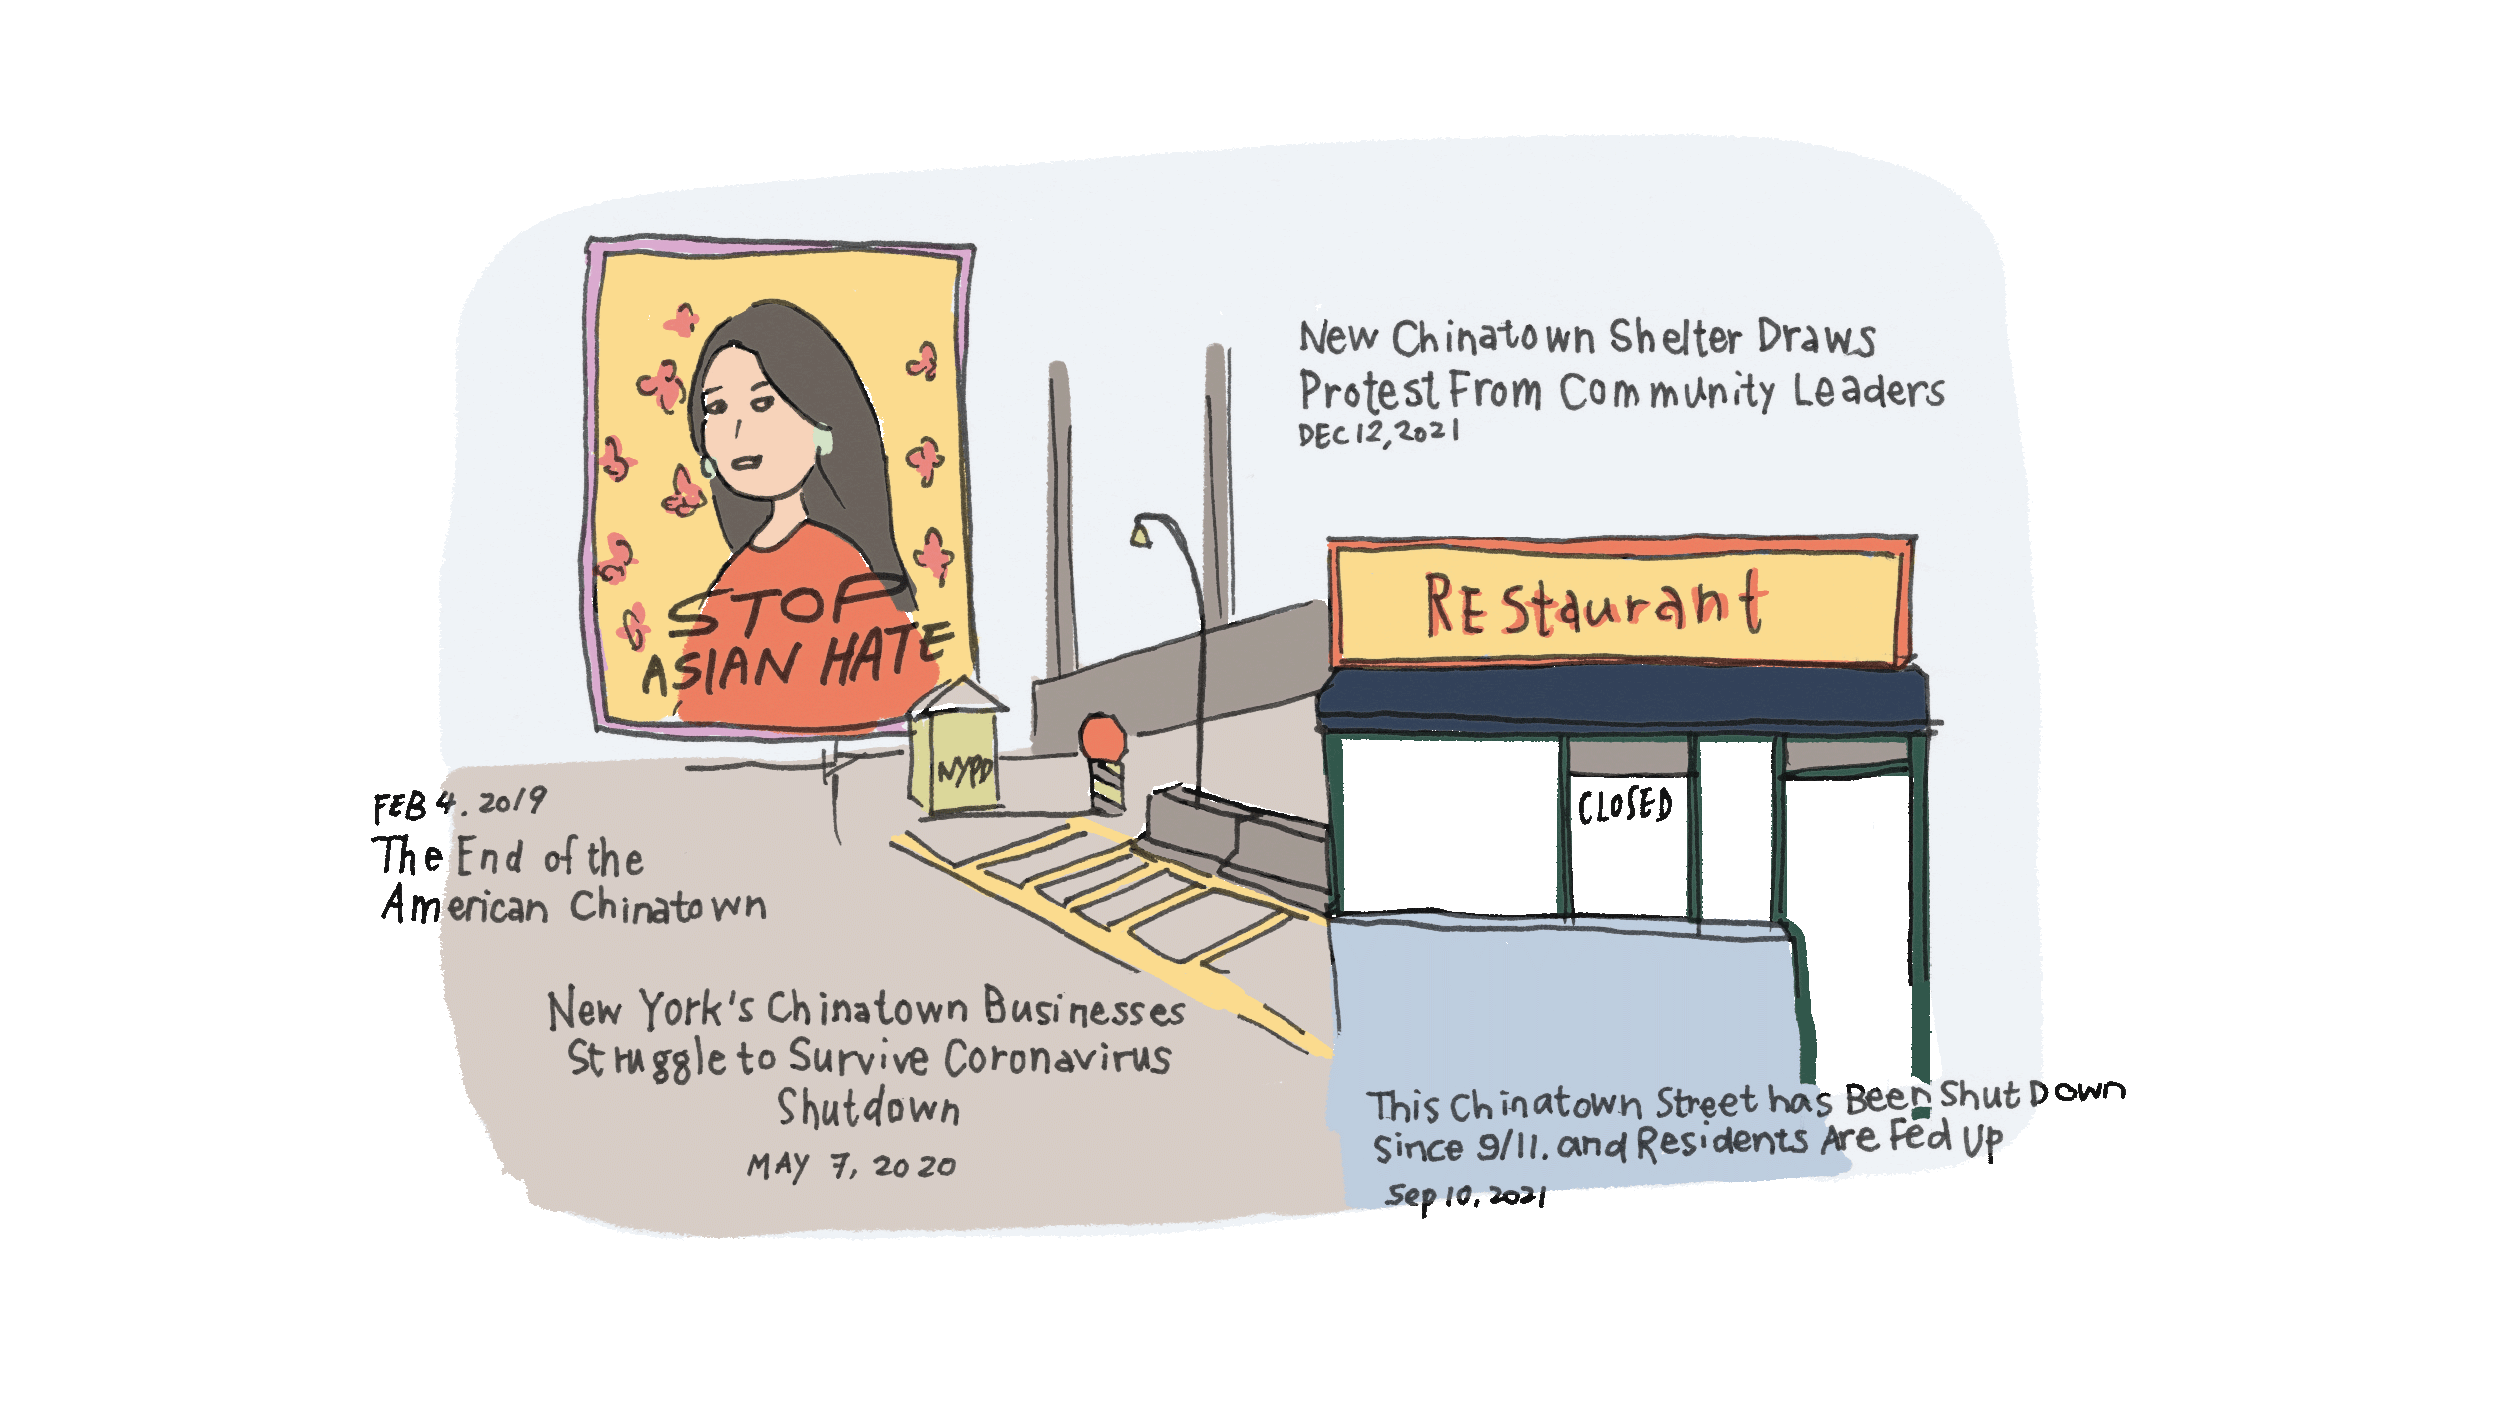 STOP
ASIAN HATE
New Chinatown Shelter Draws
Protest From Community Leaders
DEC 12, 2021
REStaurant
NYPD
CLOSED
FEB 4. 2019
The End of the
American Chinatown
New York's Chinatown Businesses
Struggle to Survive Coronavirus
Shutdown
MAY 7, 2020
This Chinatown Street has Been Shut Down
Since 9/11. and Residents Are Fed Up
Sep 10, 2021